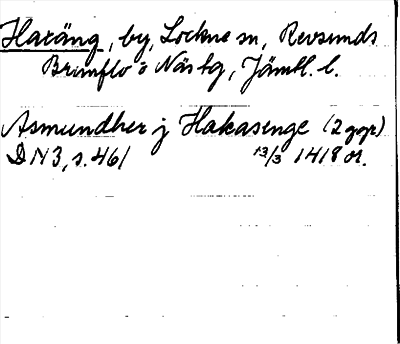 Haxäng, by, Lockne sn, Revsunds
Brunflo o Näs tg, Jämtl. l.
Asmundher j Hakasenge (2 ggr)
DN3, s. 461 13/3 1418 or.